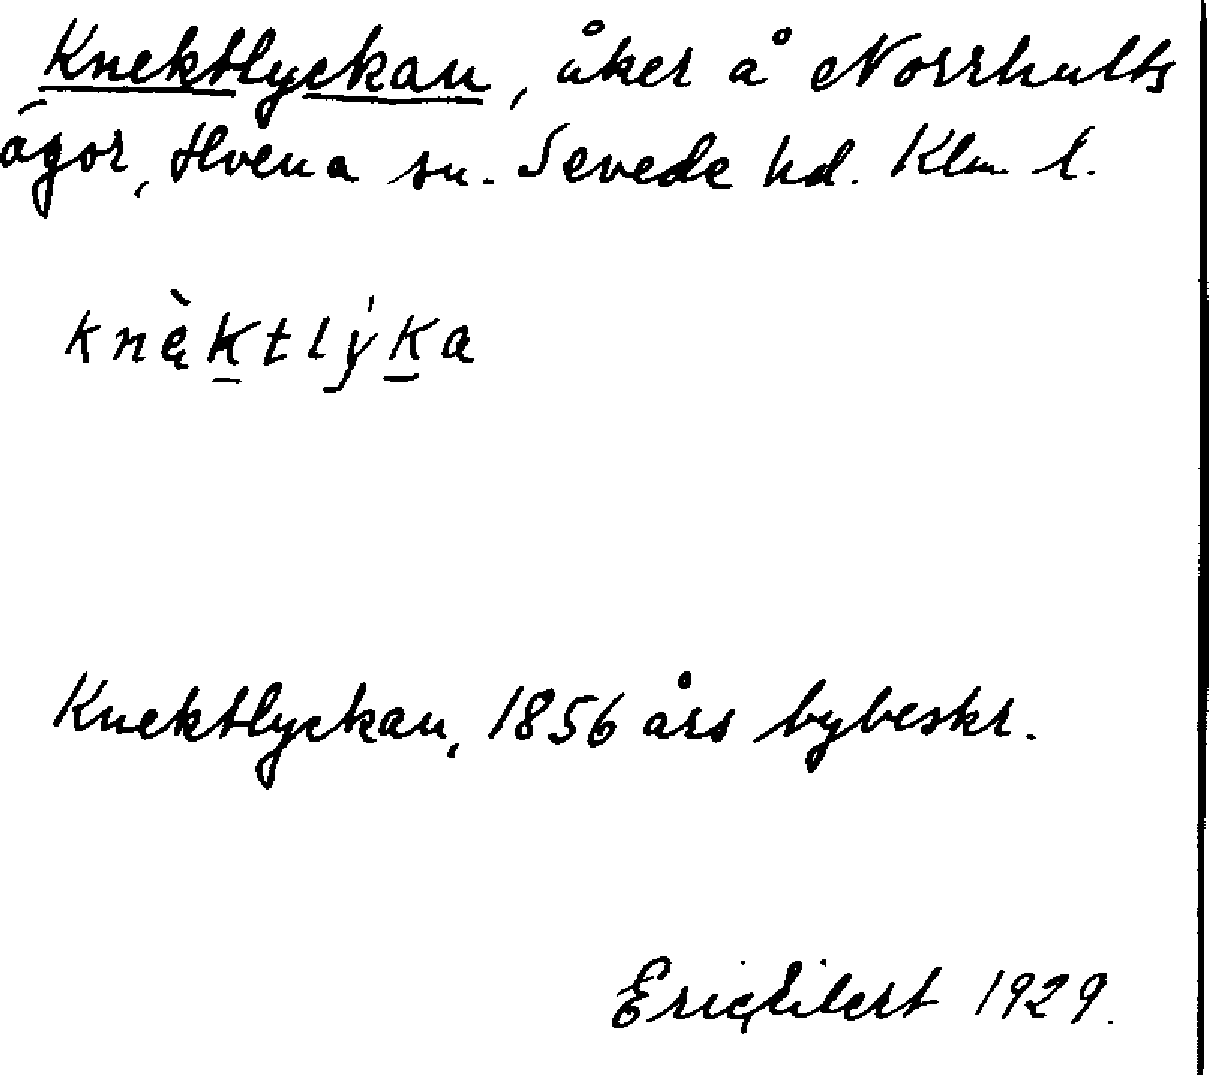 Knektlyckan, åker å Norrhults
ägor, Hvena sn. Sevede hd. Klm l.
knę̀ḵtlýḵa
Knektlyckan, 1856 års bybeskr.
Eric 1929.